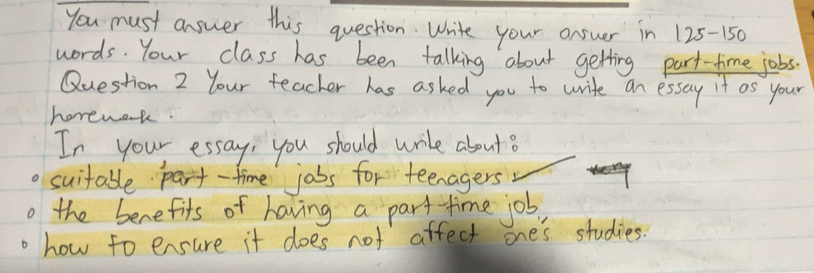 You must answer this question. Write your answer in 125-150
words. Your class has been talking about getting part-time jobs.
Question 2 Your teacher has asked you to write an essay it as your
homework.
In your essay, you should write about:
• suitable part-time jobs for teenagers
• the benefits of having a part time job.
• how to ensure it does not affect one's studies.